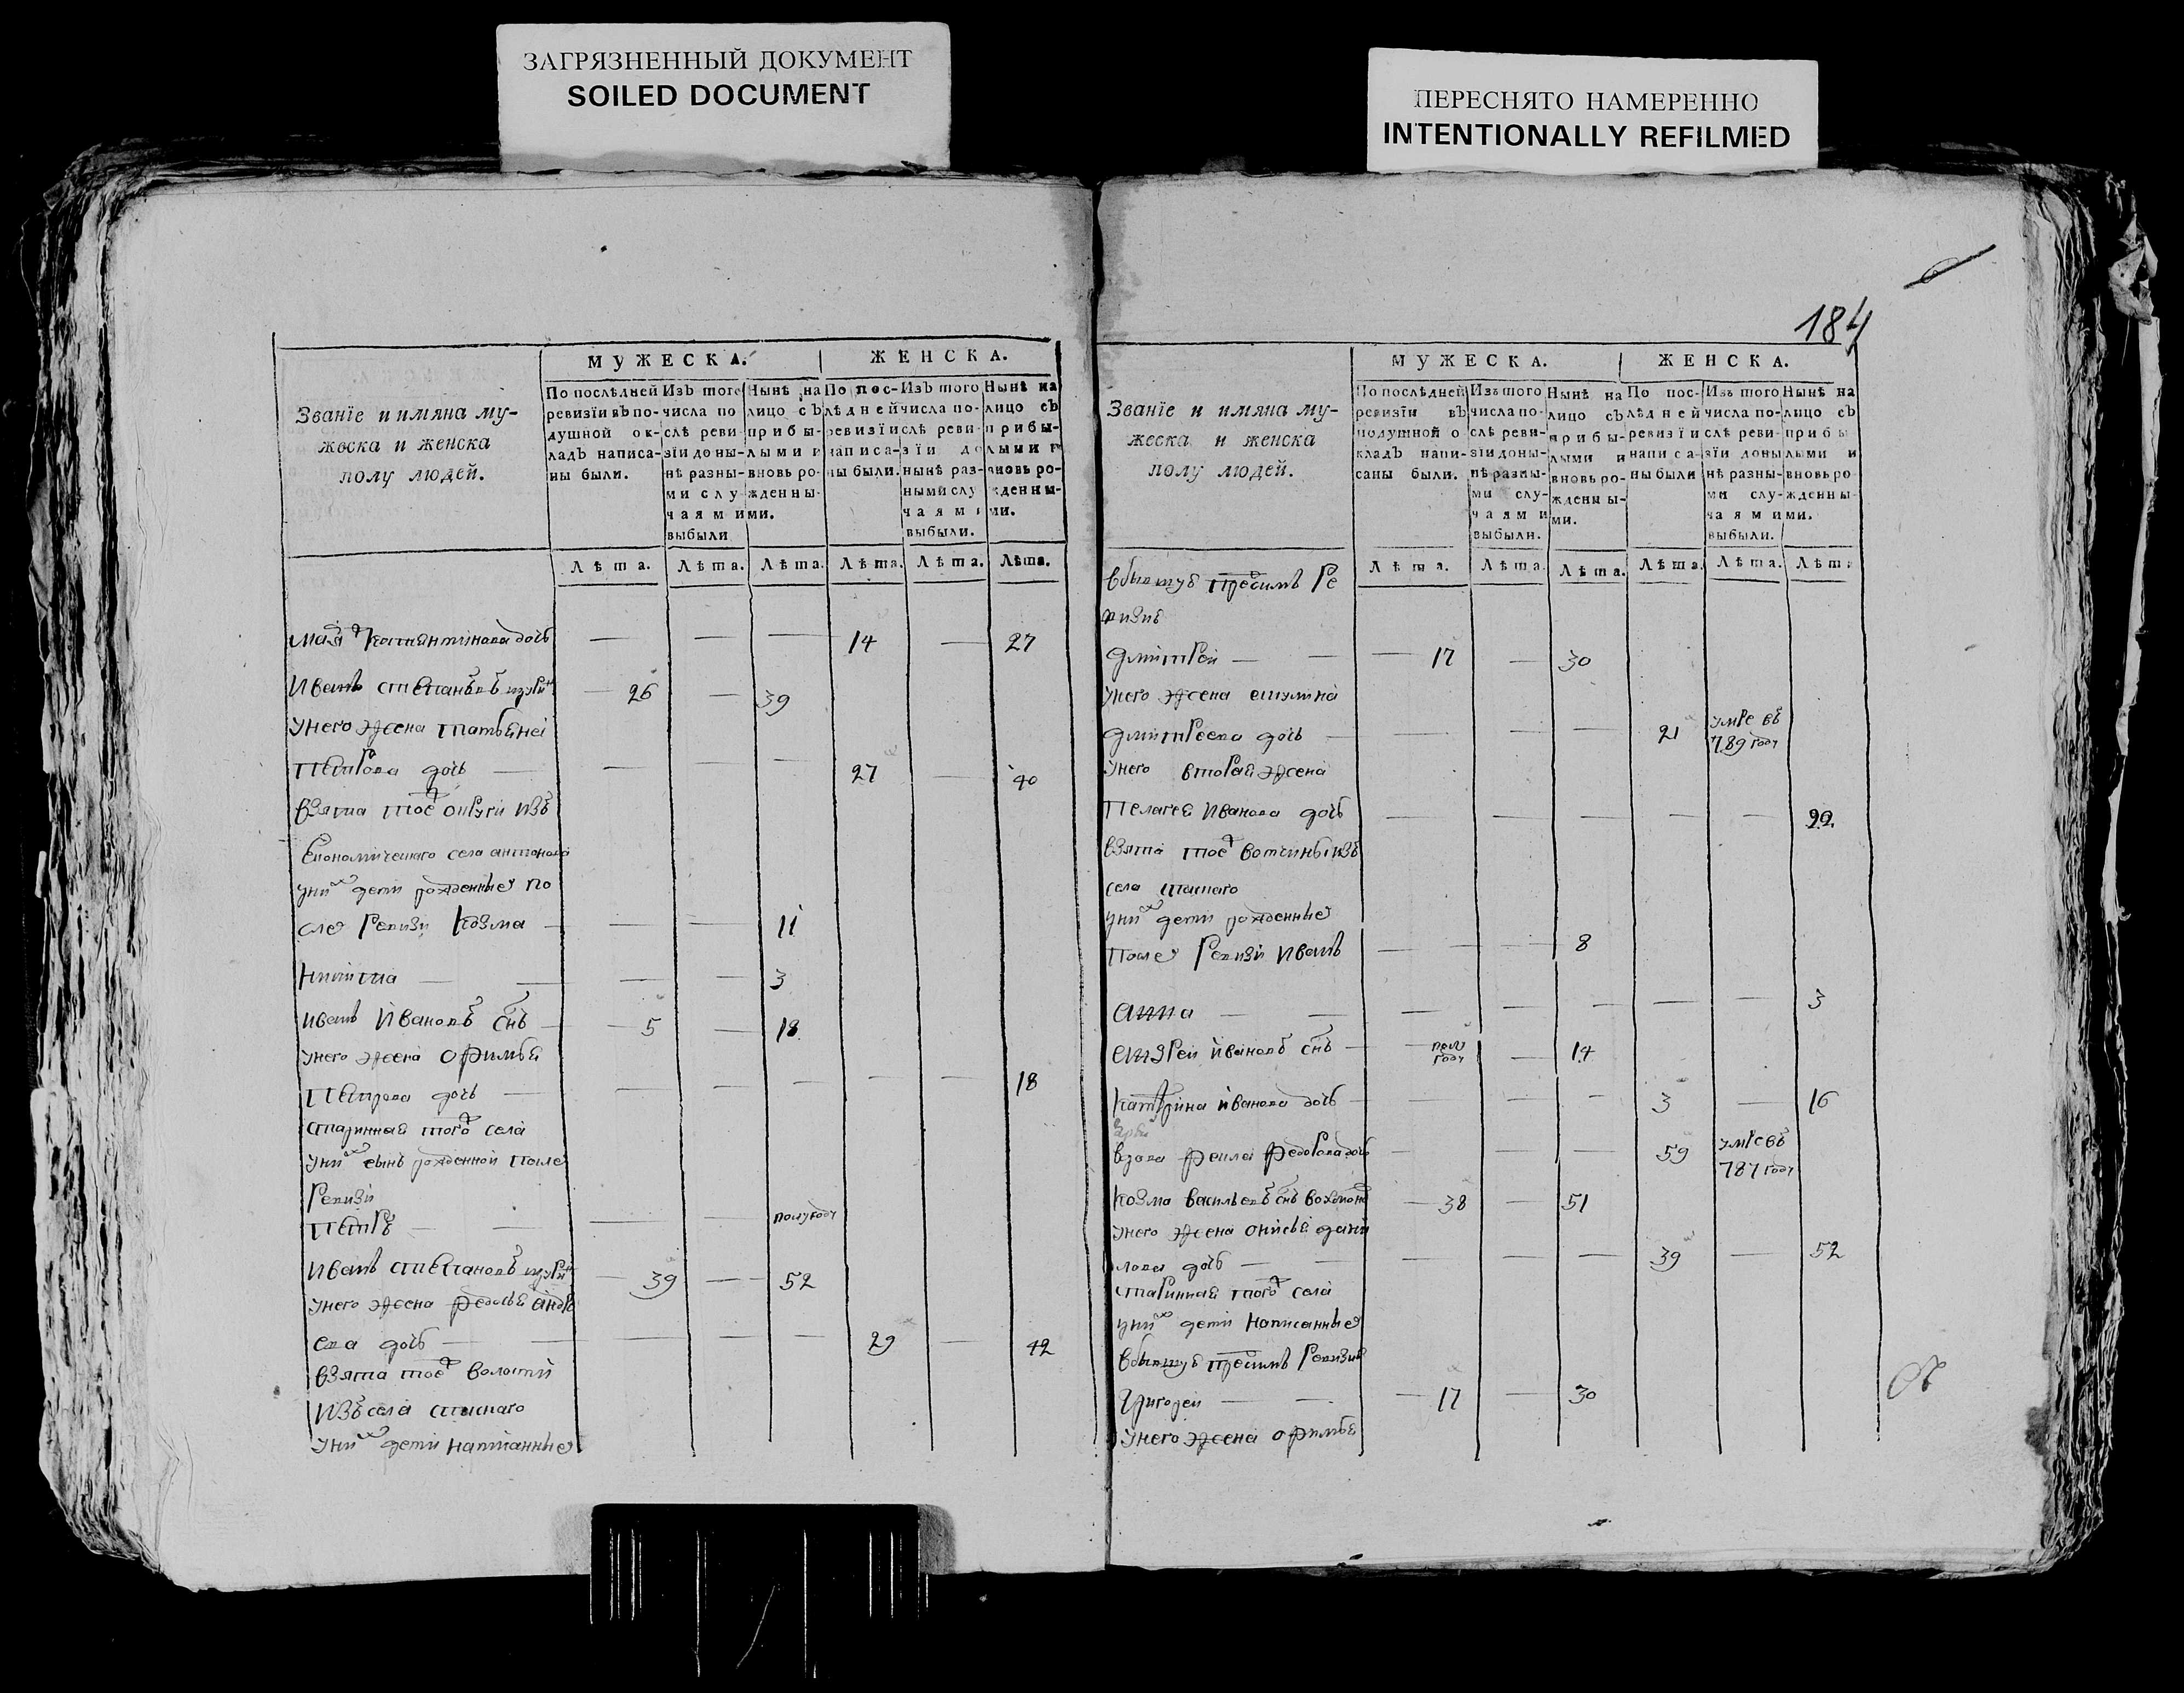 ЗАГРЯЗНЕННЫЙ ДОКУМЕНТ
SOILED DOCUMENT
ПЕРЕСНЯТО НАМЕРЕННО
INTENTIONALLY REFILMED
Званїе и имяна му-
жеска и женска
полу людей.
МУЖЕСКА.
ЖЕНСКА.
По послѣдней ревизїи въ по-душной ок-ладъ написа-ны были.
Изъ того числа по слѣ реви зїи до ны-нѣ разны-ми слу чаями выбыли
Нынѣ на лицо съ прибы-лыми и вновь ро-жденны-ми.
По пос-лѣдней ревизїи написа-ны были.
Изъ того числа по-слѣ реви-зїи до нынѣ раз-ными слу чаями выбыли.
Нынѣ на лицо съ прибы-лыми и вновь ро-жденны-ми.
Лѣта. Лѣта. Лѣта. Лѣта. Лѣта. Лѣта.
дочь 14 27
Иванъ Степановъ 26 39
у него жена Татьяна
Петрова дочь 27 40
взята той округи изъ
Економического села Антонова
у них дети рожденные по
сле ревизи Козма 11
Никита 3
Иванъ Ивановъ снъ 5 18
у него жена Офимья
Петрова дочь 18
старинная того села
у них сынъ рожденной после
ревизи
Петръ полугоду
Иванъ Степановъ 39 52
у него жена Федосья Андре
ева дочь 29 42
взята той волости
изъ села Спаского
у них дети написанные
184
Званїе и имяна му-
жеска и женска
полу людей.
МУЖЕСКА.
ЖЕНСКА.
По послѣдней ревизїи въ подушной о кладъ напи-саны были.
Изъ того числа по-слѣ реви-зїи до ны-нѣ разны-ми слу-чаями выбыли.
Нынѣ на лицо съ прибы-лыми и вновь ро-жденны-ми.
По пос-лѣдней ревизїи написа-ны были
Изъ того числа по-слѣ реви-зїи до ны нѣ разны-ми слу-чаями выбыли.
Нынѣ на лицо съ прибы лыми и вновь ро жденны-ми.
Лѣта. Лѣта. Лѣта. Лѣта. Лѣта. Лѣта
в бытную пред симъ ре
визию
Дмитрей 17 30
у него жена
Дмитреева дочь 21 умре въ 789 году
у него вторая жена
Пелагея Иванова дочь 29
взята той вотчины изъ
села Спаского
у них дети рожденные
после ревизи Иванъ 8
Анна 3
Андрей Ивановъ снъ полу году 14
Катрина Иванова дочь 3 16
вдова Федорова дочь 59 умре въ 787 году
Козма Васильевъ снъ 38 51
у него жена Анисья Дани
лова дочь 39 52
старинная того села
у них дети написанные
в бытную пред симъ ревизию
Григорей 17 30
у него жена Офимья